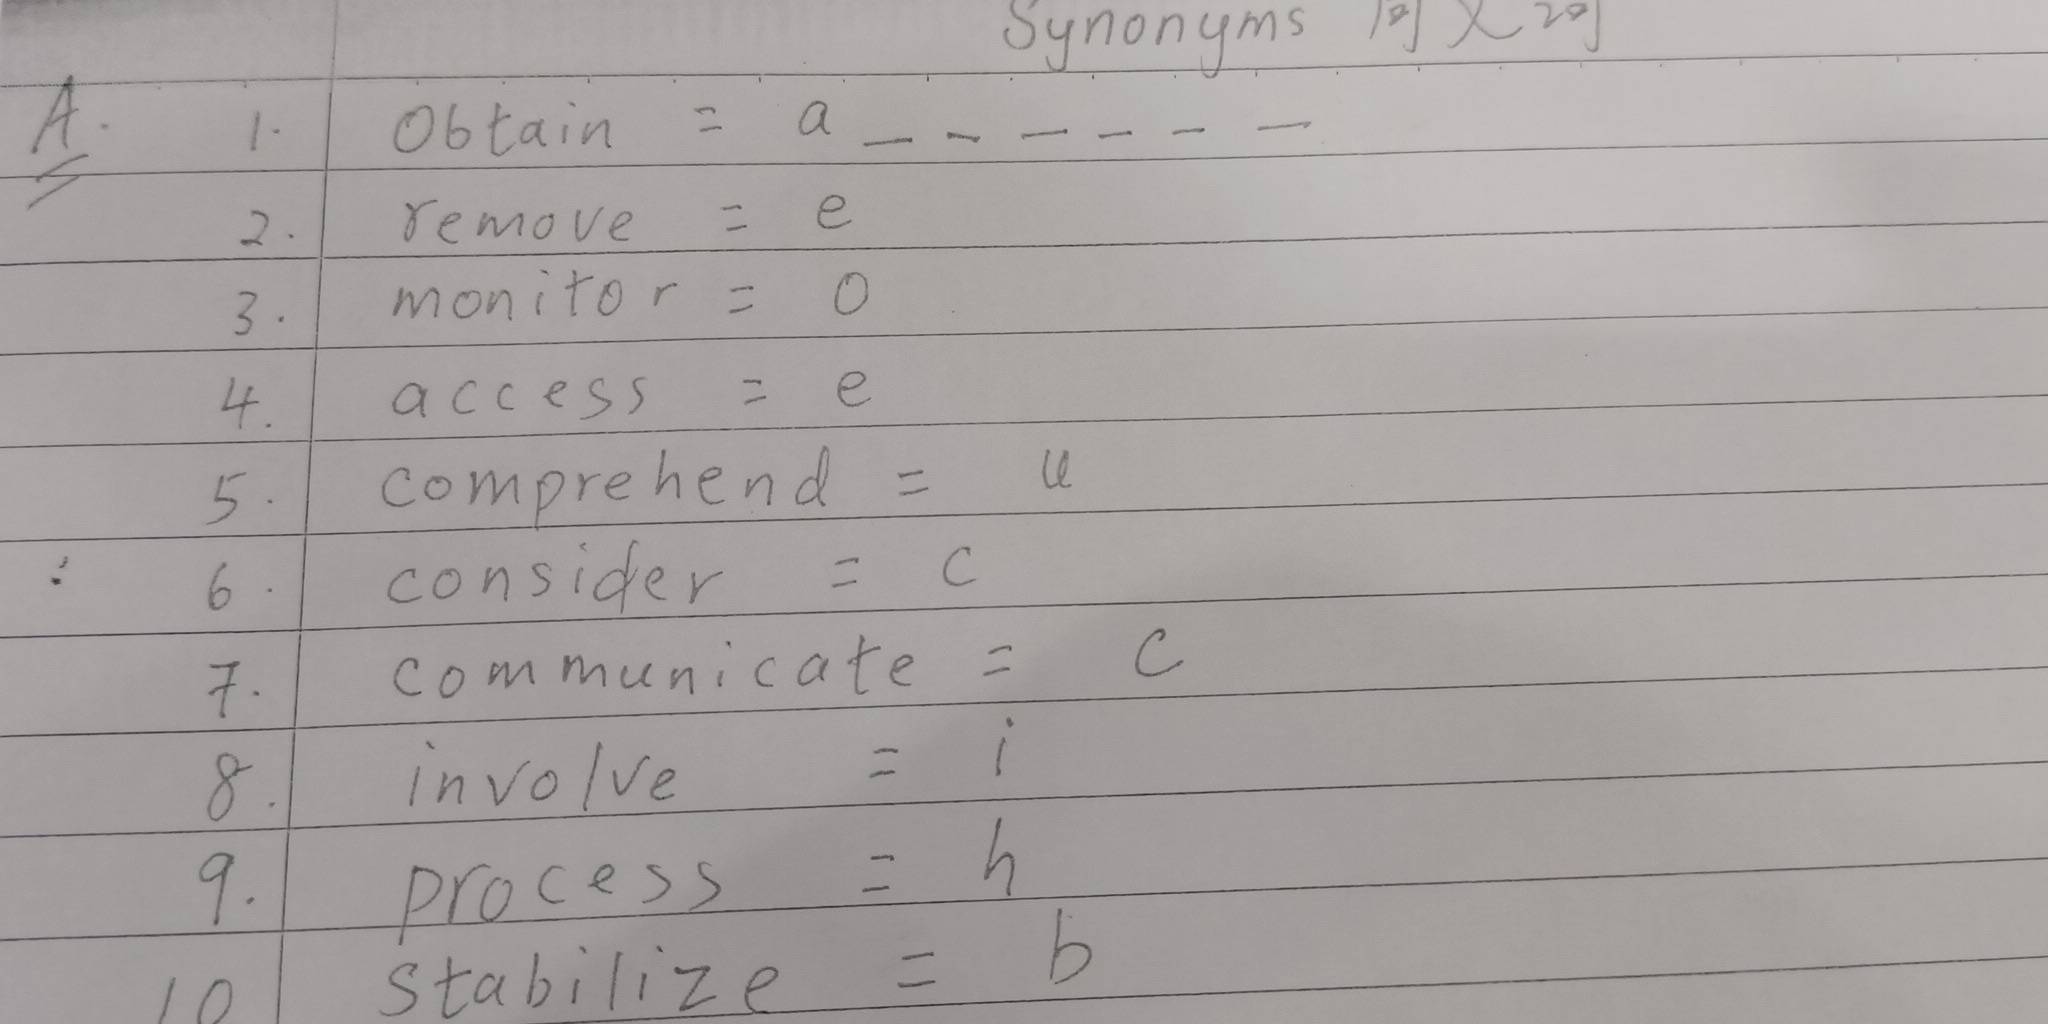 Synonyms 同义词
A. 1. Obtain = a _ _ _ _ _ _
2. remove = e
3. monitor = o
4. access = e
5. comprehend = u
6. consider = c
7. communicate = c
8. involve = i
9. process = h
10 stabilize = b